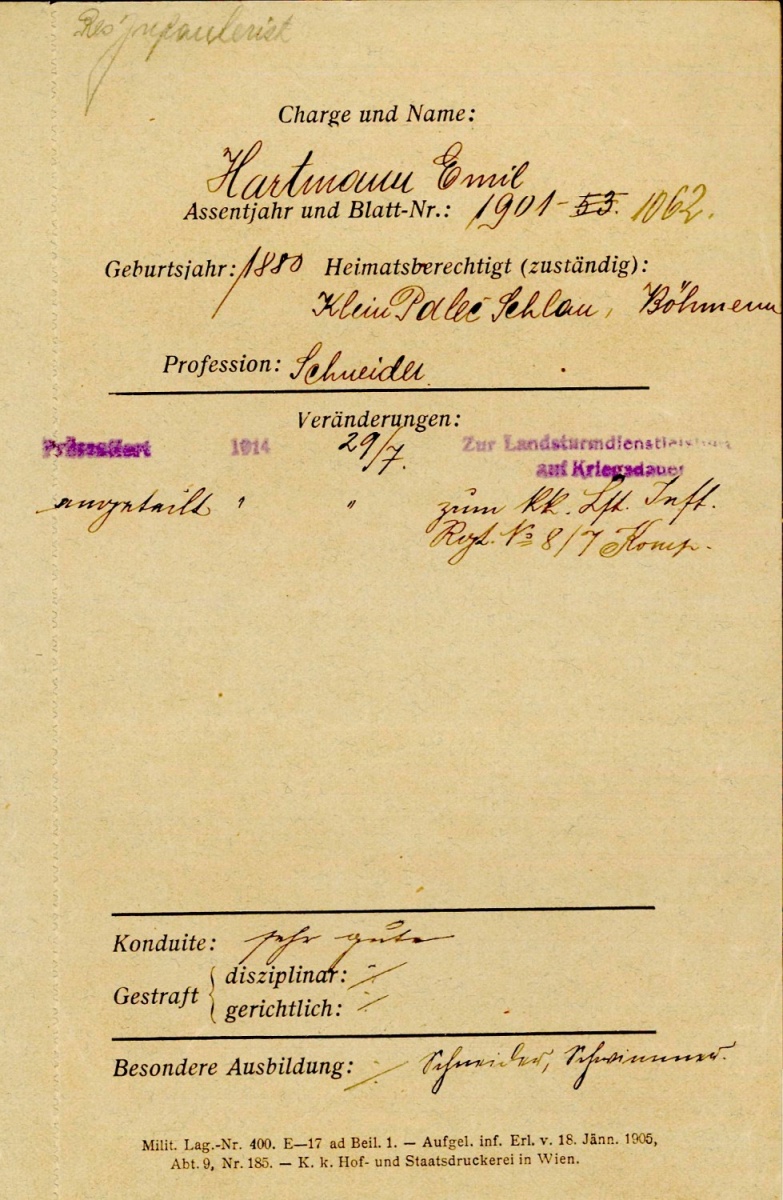 Res Infanterist
Charge und Name:
Hartmann Emil
Assentjahr und Blatt-Nr.: 1901 - 53. 1062.
Geburtsjahr: 1880 Heimatsberechtigt (zuständig):
Klein Palec Schlan, Böhmen
Profession: Schneider
Veränderungen:
Präsentiert 1914 29/7. Zur Landsturmdienstleistung
auf Kriegsdauer
zugeteilt " " zum kk. Lst. Inft.
Rgt. No 8/7 Komp.
Konduite: sehr gute
Gestraft { disziplinar: ./.
gerichtlich: ./.
Besondere Ausbildung: ./. Schneider, Schwimmer.
Milit. Lag.-Nr. 400. E—17 ad Beil. 1. — Aufgel. inf. Erl. v. 18. Jänn. 1905,
Abt. 9, Nr. 185. — K. k. Hof- und Staatsdruckerei in Wien.